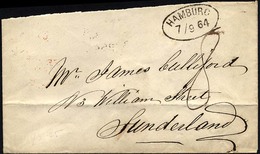 HAMBURG
7/9 64
Mr. James Cullyford
13 William Street
Sunderland
8